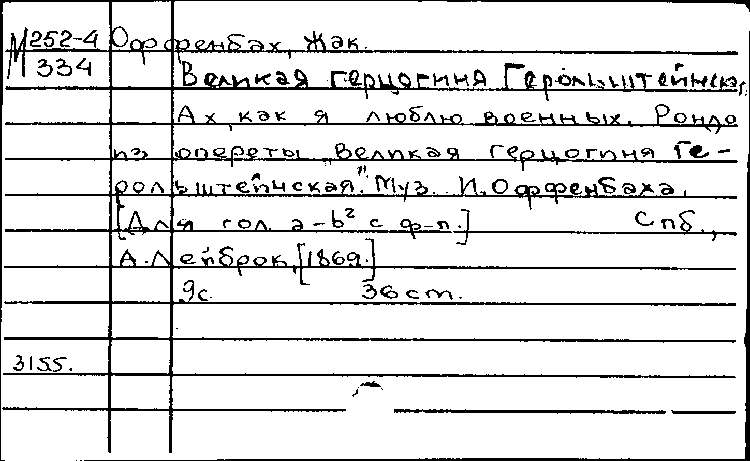 М 252-4 Оффенбах, Жак.
334 Великая герцогиня Герольштейнская
Ах, как я люблю военных. Рондо
из оперетты „Великая герцогиня Ге-
рольштейнская". Муз. И. Оффенбаха.
[Для гол. a-b² с ф-п.] Спб.,
А. Лейброк, [1869.]
9с. 36 cm.
3155.